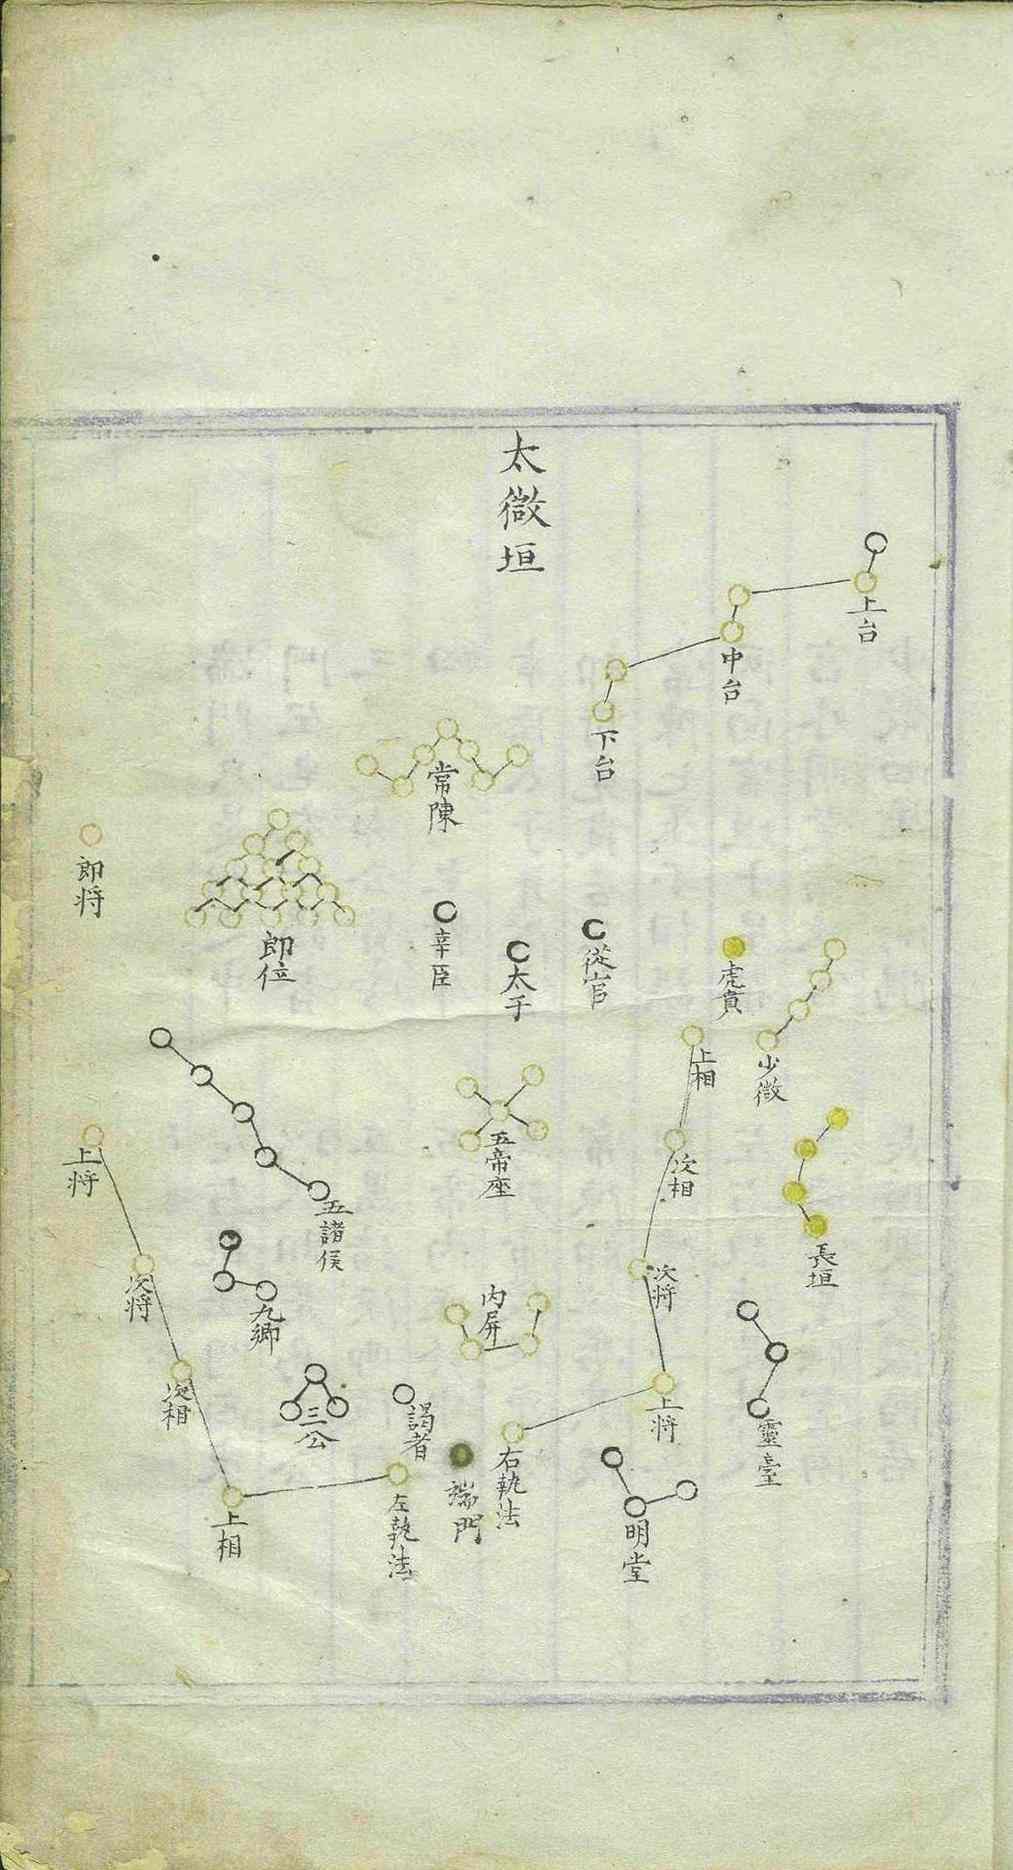 太微垣
上台
中台
下台
常陳
即将
即位
辛臣
太子
從官
虎賁
少微
上相
五帝座
次相
上将
五諸侯
長垣
次将
次将
九卿
内屏
次相
三公
謁者
上将
靈臺
右執法
端門
左執法
明堂
上相